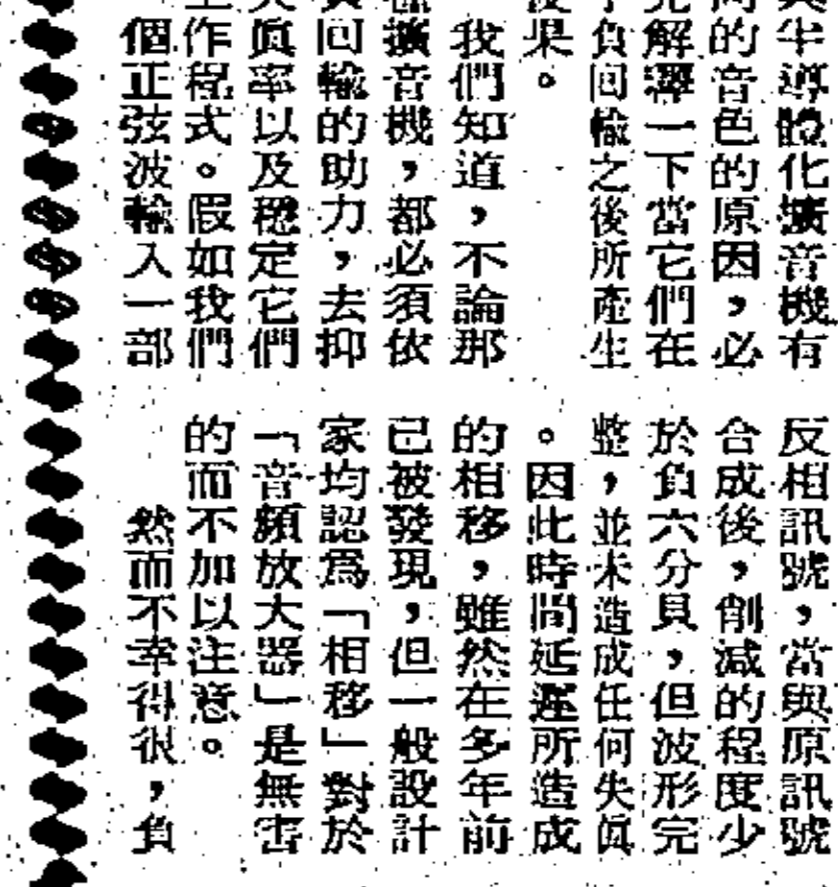 半導體化擴音機有
的音色的原因，必
解釋一下當它們在
負回輸之後所產生
果。
我們知道，不論那
擴音機，都必須依
回輸的助力，去抑
眞率以及穩定它們
作程式。假如我們
個正弦波輸入一部
反相訊號，當與原訊號
合成後，削減的程度少
於負六分貝，但波形完
整，並未造成任何失眞
。因此時間延遲所造成
的相移，雖然在多年前
已被發現，但一般設計
家均認爲「相移」對於
「音頻放大器」是無害
的而不加以注意。
然而不幸得很，負